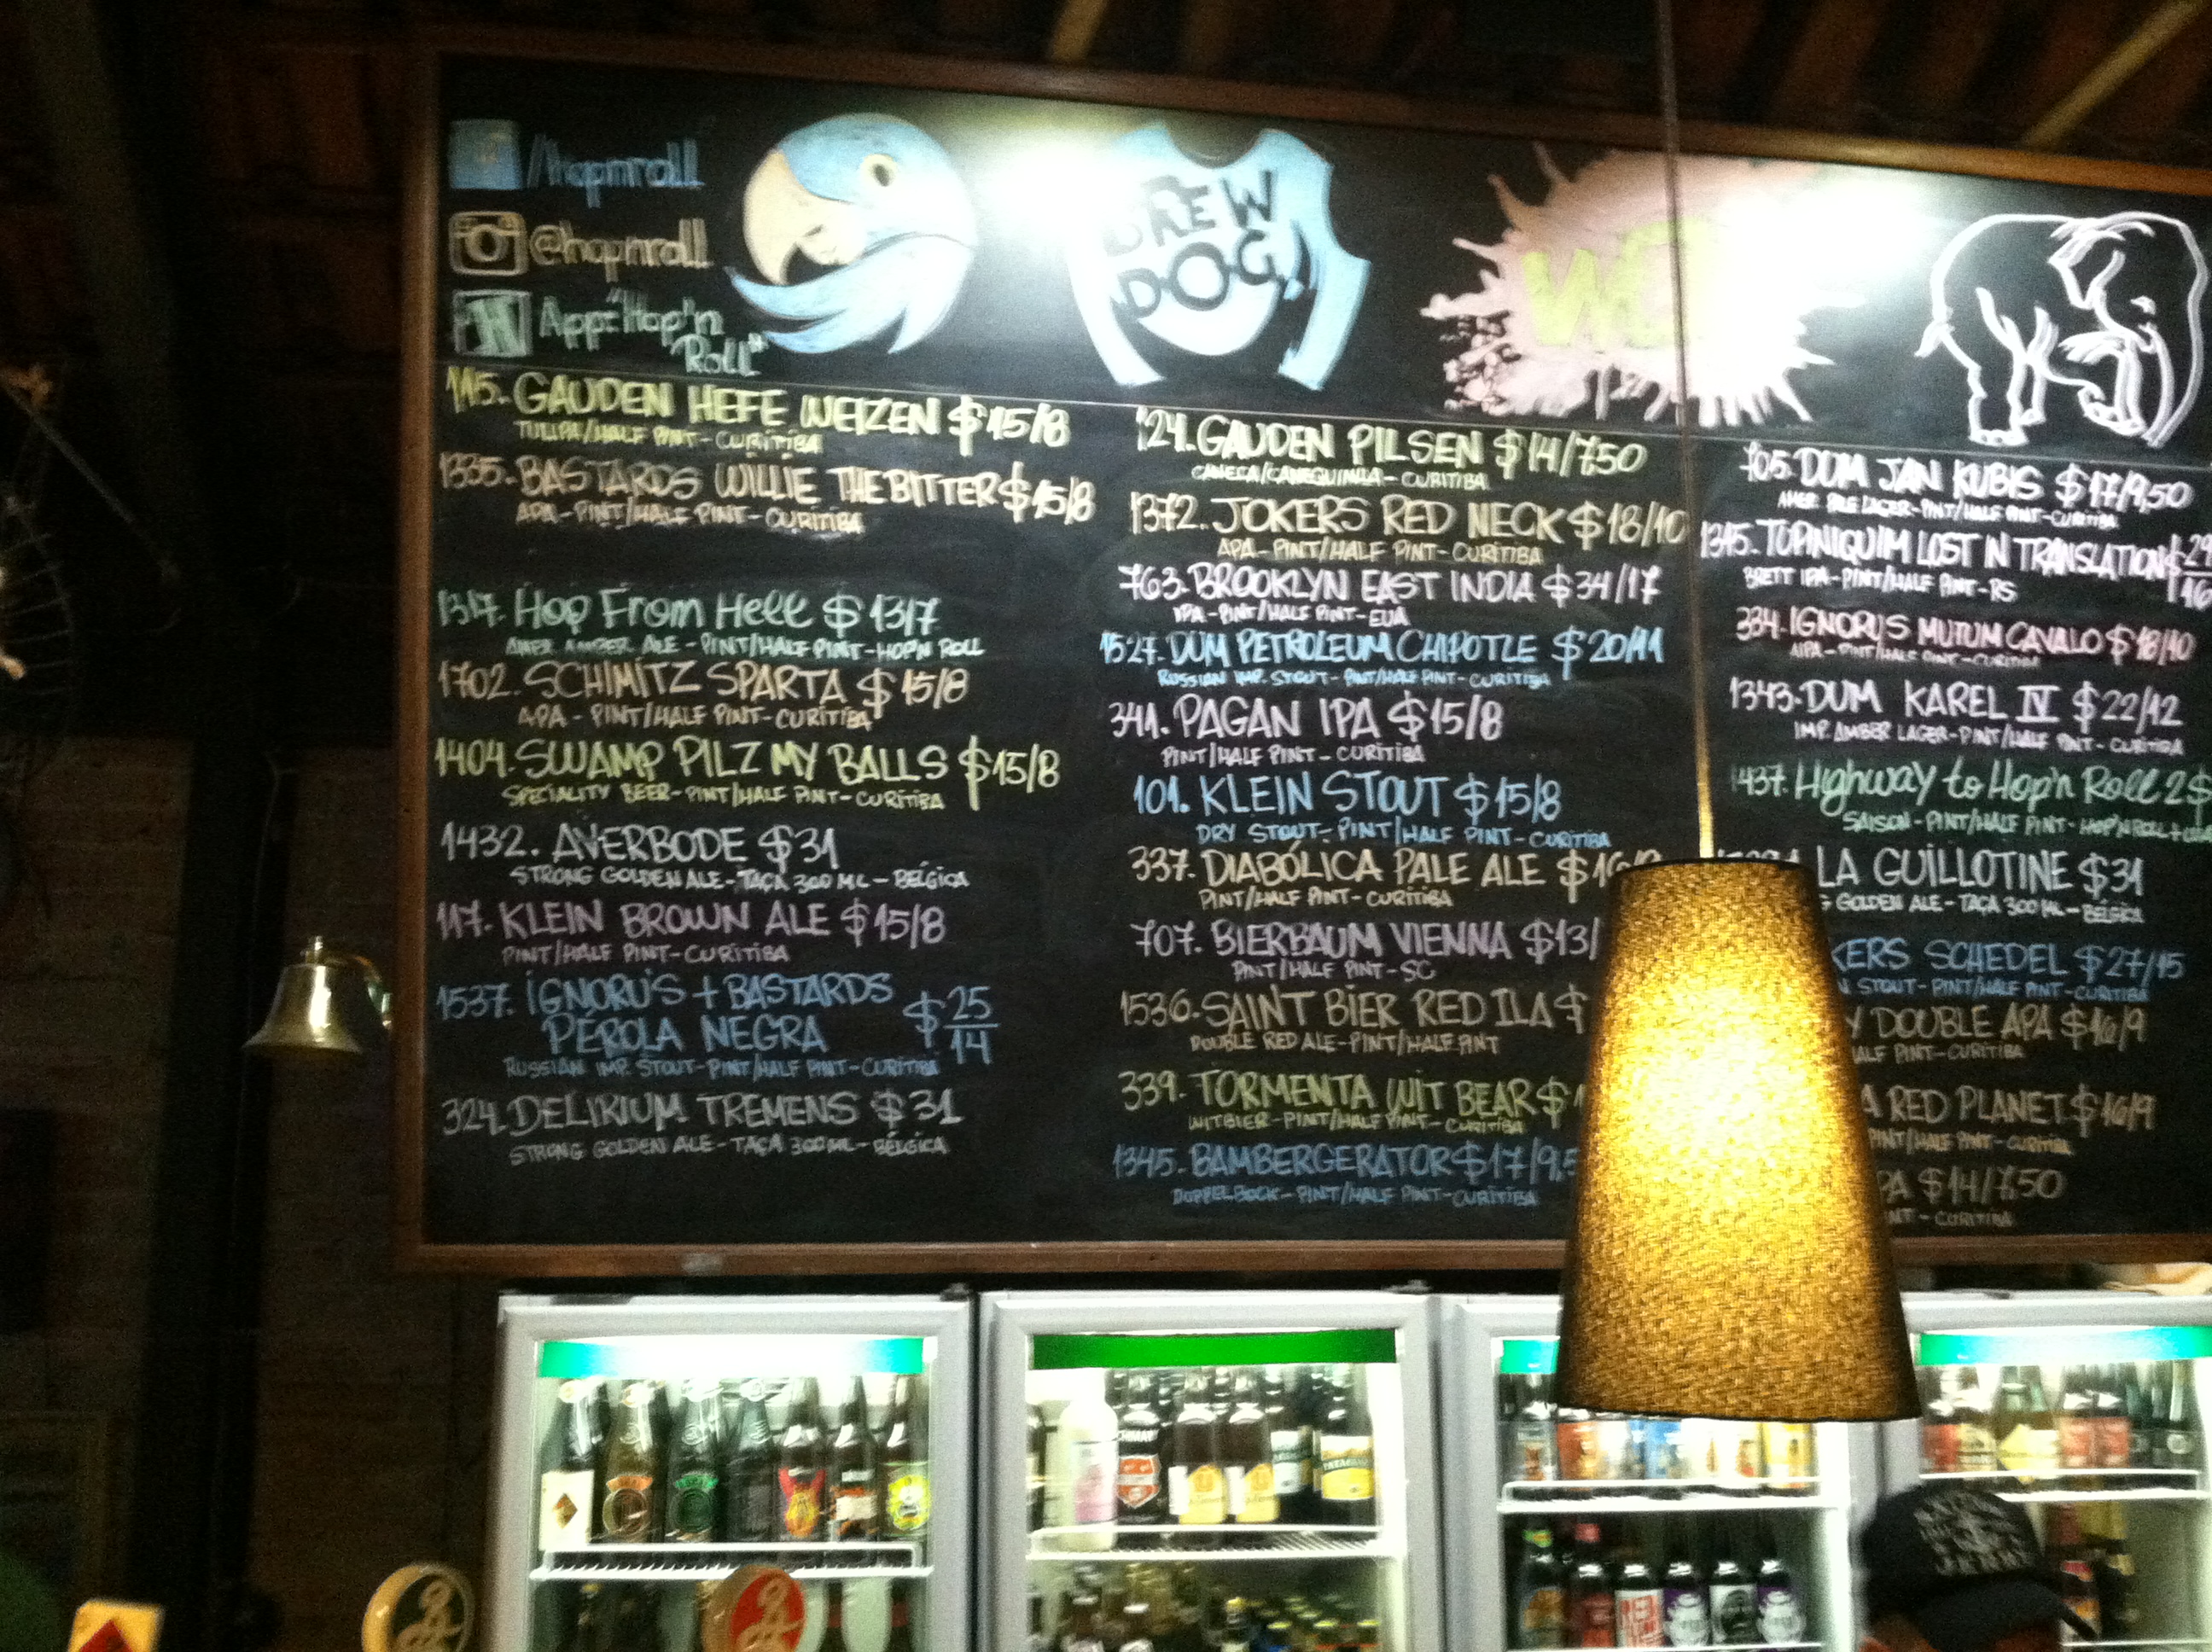 /hopnroll
@hopnroll
App: "Hop'n
Roll"
BREW
DOG
115. GAUDEN HEFE WEIZEN $15/8
TULIPA/HALF PINT - CURITIBA
1335. BASTARDS WILLIE THE BITTER $15/8
APA - PINT/HALF PINT - CURITIBA
1317. Hop From Hell $13/7
AMER AMBER ALE - PINT/HALF PINT - HOP'N ROLL
1702. SCHIMITZ SPARTA $15/8
APA - PINT/HALF PINT - CURITIBA
1404. SWAMP PILZ MY BALLS $15/8
SPECIALITY BEER - PINT/HALF PINT - CURITIBA
1432. AVERBODE $31
STRONG GOLDEN ALE - TAÇA 300 ML - BÉLGICA
117. KLEIN BROWN ALE $15/8
PINT/HALF PINT - CURITIBA
1537. IGNORUS + BASTARDS
PEROLA NEGRA $25/14
RUSSIAN IMP. STOUT - PINT/HALF PINT - CURITIBA
324. DELIRIUM TREMENS $31
STRONG GOLDEN ALE - TAÇA 300 ML - BÉLGICA
124. GAUDEN PILSEN $14/7,50
CANECA/CANEQUINHA - CURITIBA
1372. JOKERS RED NECK $18/10
APA - PINT/HALF PINT - CURITIBA
763. BROOKLYN EAST INDIA $34/17
IPA - PINT/HALF PINT - EUA
1527. DUM PETROLEUM CHIPOTLE $20/11
RUSSIAN IMP. STOUT - PINT/HALF PINT - CURITIBA
341. PAGAN IPA $15/8
PINT/HALF PINT - CURITIBA
101. KLEIN STOUT $15/8
DRY STOUT - PINT/HALF PINT - CURITIBA
337. DIABÓLICA PALE ALE
PINT/HALF PINT - CURITIBA
707. BIERBAUM VIENNA $13/
PINT/HALF PINT - SC
1536. SAINT BIER RED ILA $
DOUBLE RED ALE - PINT/HALF PINT
339. TORMENTA WIT BEAR $1
WITBIER - PINT/HALF PINT - CURITIBA
1345. BAMBERGERATOR $17/9,5
DOPPELBOCK - PINT/HALF PINT - CURITIBA
705. DUM JAN KUBIS $17/9,50
AMER PALE LAGER - PINT/HALF PINT - CURITIBA
1345. TUPINIQUIM LOST IN TRANSLATION $29/16
BRETT IPA - PINT/HALF PINT - RS
334. IGNORUS MUTUM CAVALO $18/10
AIPA - PINT/HALF PINT - CURITIBA
1343. DUM KAREL IV $22/12
IMP. AMBER LAGER - PINT/HALF PINT - CURITIBA
1437. Highway to Hop'n Roll 2 $
SAISON - PINT/HALF PINT - HOP'N ROLL +
LA GUILLOTINE $31
GOLDEN ALE - TAÇA 300 ML - BÉLGICA
KERS SCHEDEL $27/15
STOUT - PINT/HALF PINT - CURITIBA
Y DOUBLE APA $16/9
HALF PINT - CURITIBA
A RED PLANET $16/9
PINT/HALF PINT - CURITIBA
PA $14/7,50
NT - CURITIBA